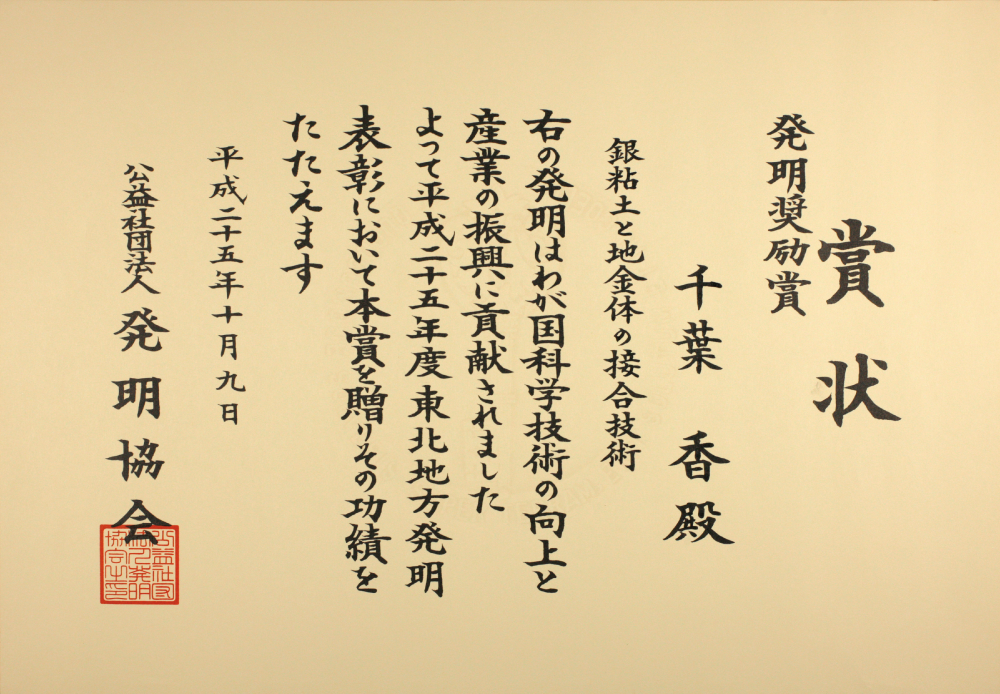 賞状
発明奨励賞
千葉 香殿
銀粘土と地金体の接合技術
右の発明はわが国科学技術の向上と
産業の振興に貢献されました
よって平成二十五年度東北地方発明
表彰において本賞を贈りその功績を
たたえます
平成二十五年十月九日
公益社団法人 発明協会
公益社団
法人発明
協会之印